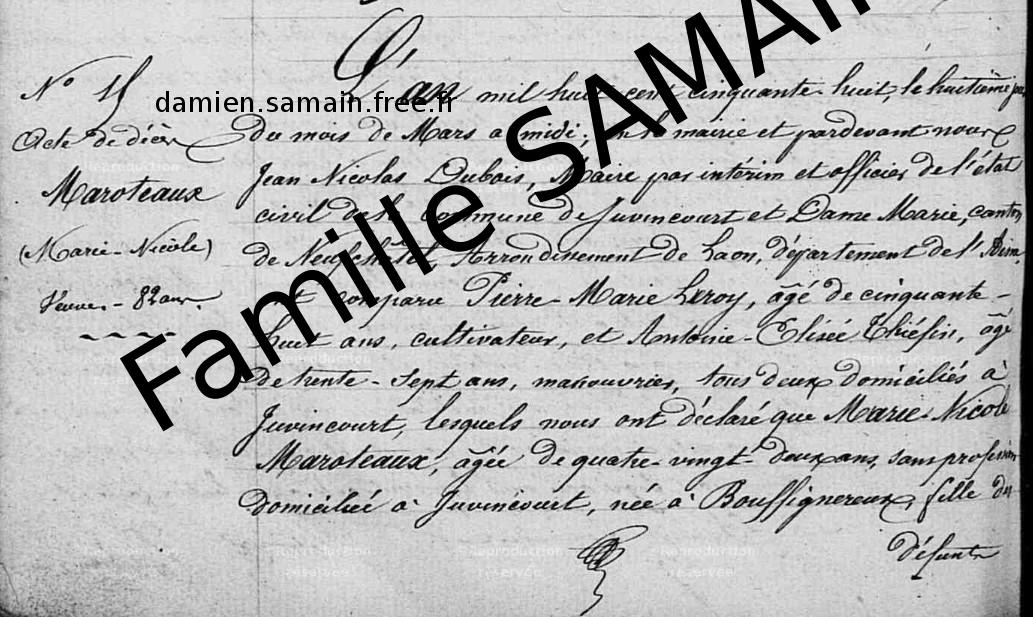 N° 15
Acte de décès
Maroteaux
(Marie-Nicole)
Veuve - 82 ans
damien.samain.free.fr
Famille SAMAIN
L'an mil huit cent cinquante-huit, le huitième jour
du mois de Mars a midi, en la mairie et pardevant nous
Jean Nicolas Dubois, Maire par intérim et officier de l'état
civil de la commune de Juvincourt et Dame Marie, canton
de Neufchâtel, Arrondissement de Laon, département de l'Aisne
ont comparu Pierre-Marie Leroy, âgé de cinquante-
huit ans, cultivateur, et Antoine-Elisée Thiéfin, âgé
de trente-sept ans, manouvrier, tous deux domiciliés à
Juvincourt, lesquels nous ont déclaré que Marie-Nicole
Maroteaux, âgée de quatre-vingt-deux ans, sans profession
domiciliée à Juvincourt, née à Bouffignereux, fille du
défunts
Reproduction réservée